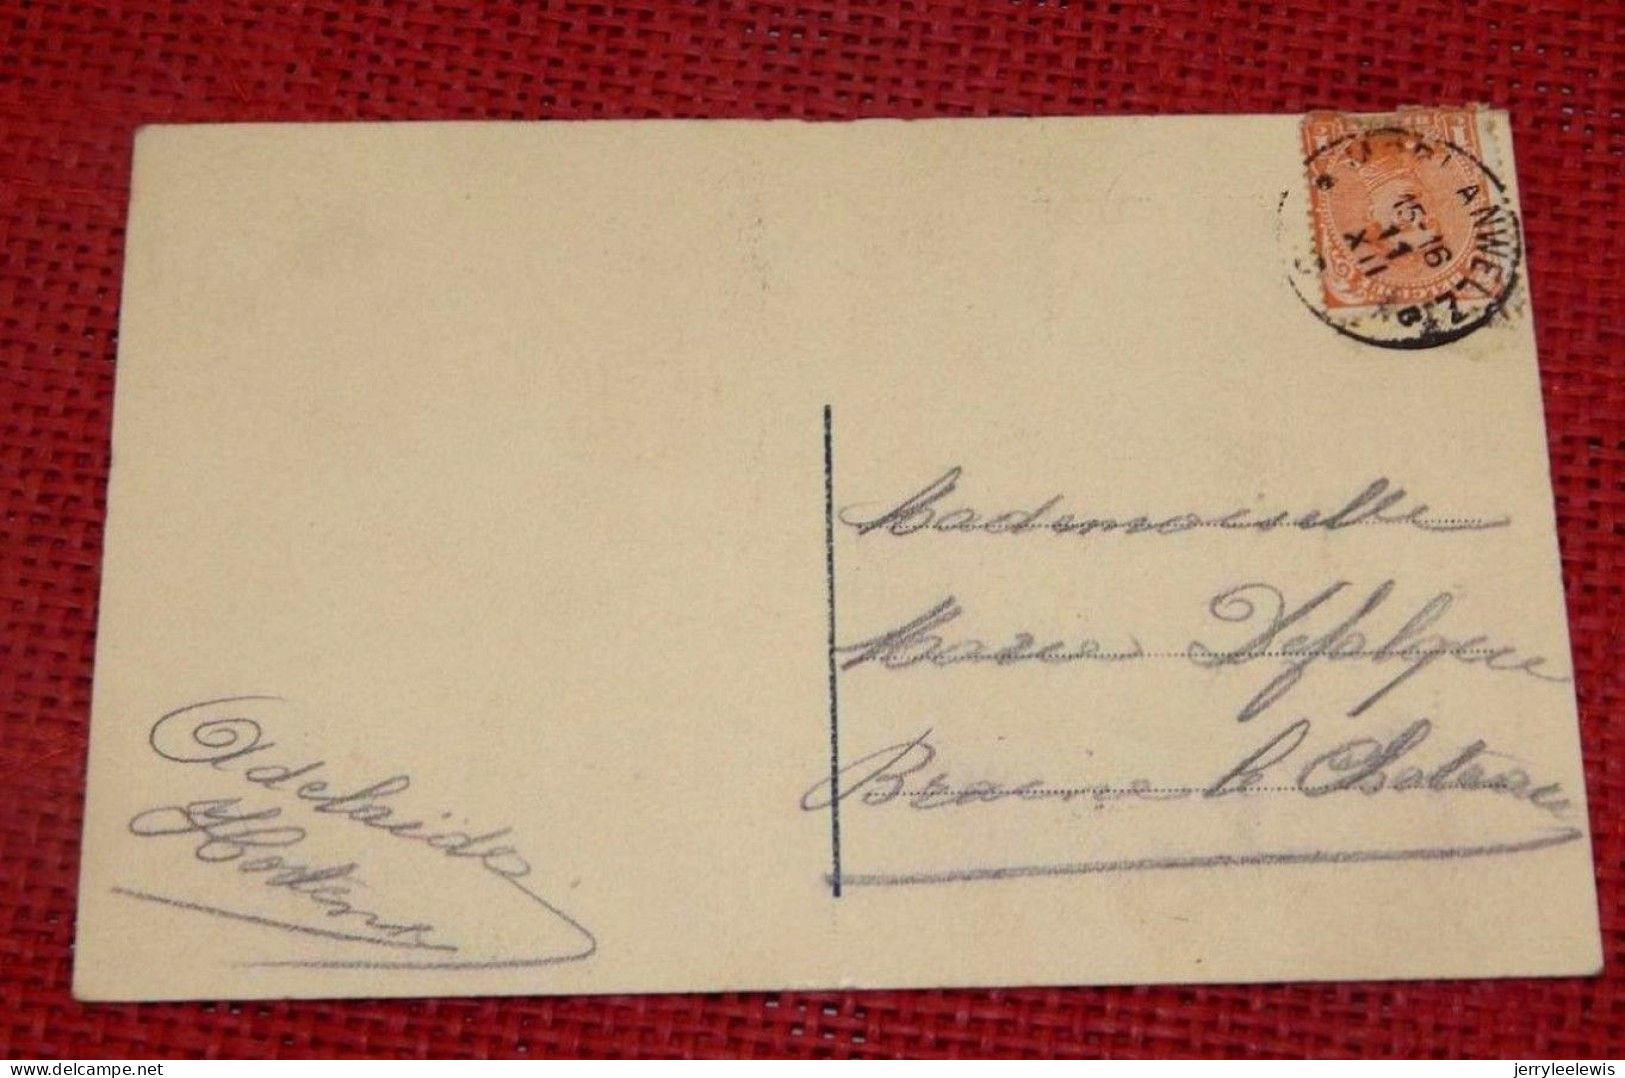 ANWELZ
15-16
11
XII
Mademoiselle
Maria Defalque
Braine le Chateau
Adelaïde
Hostens
delcampe.net
jerryleelewis